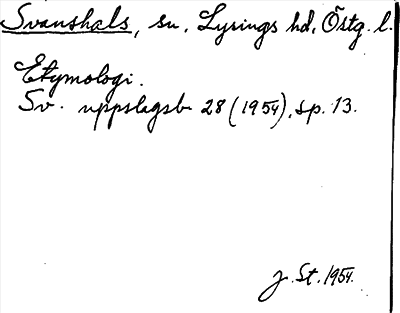 Svanshals, sn, Lysings hd, Östg. l.
Etymologi.
Sv. uppslagsb. 28 (1954), sp. 13.
J. St. 1954.